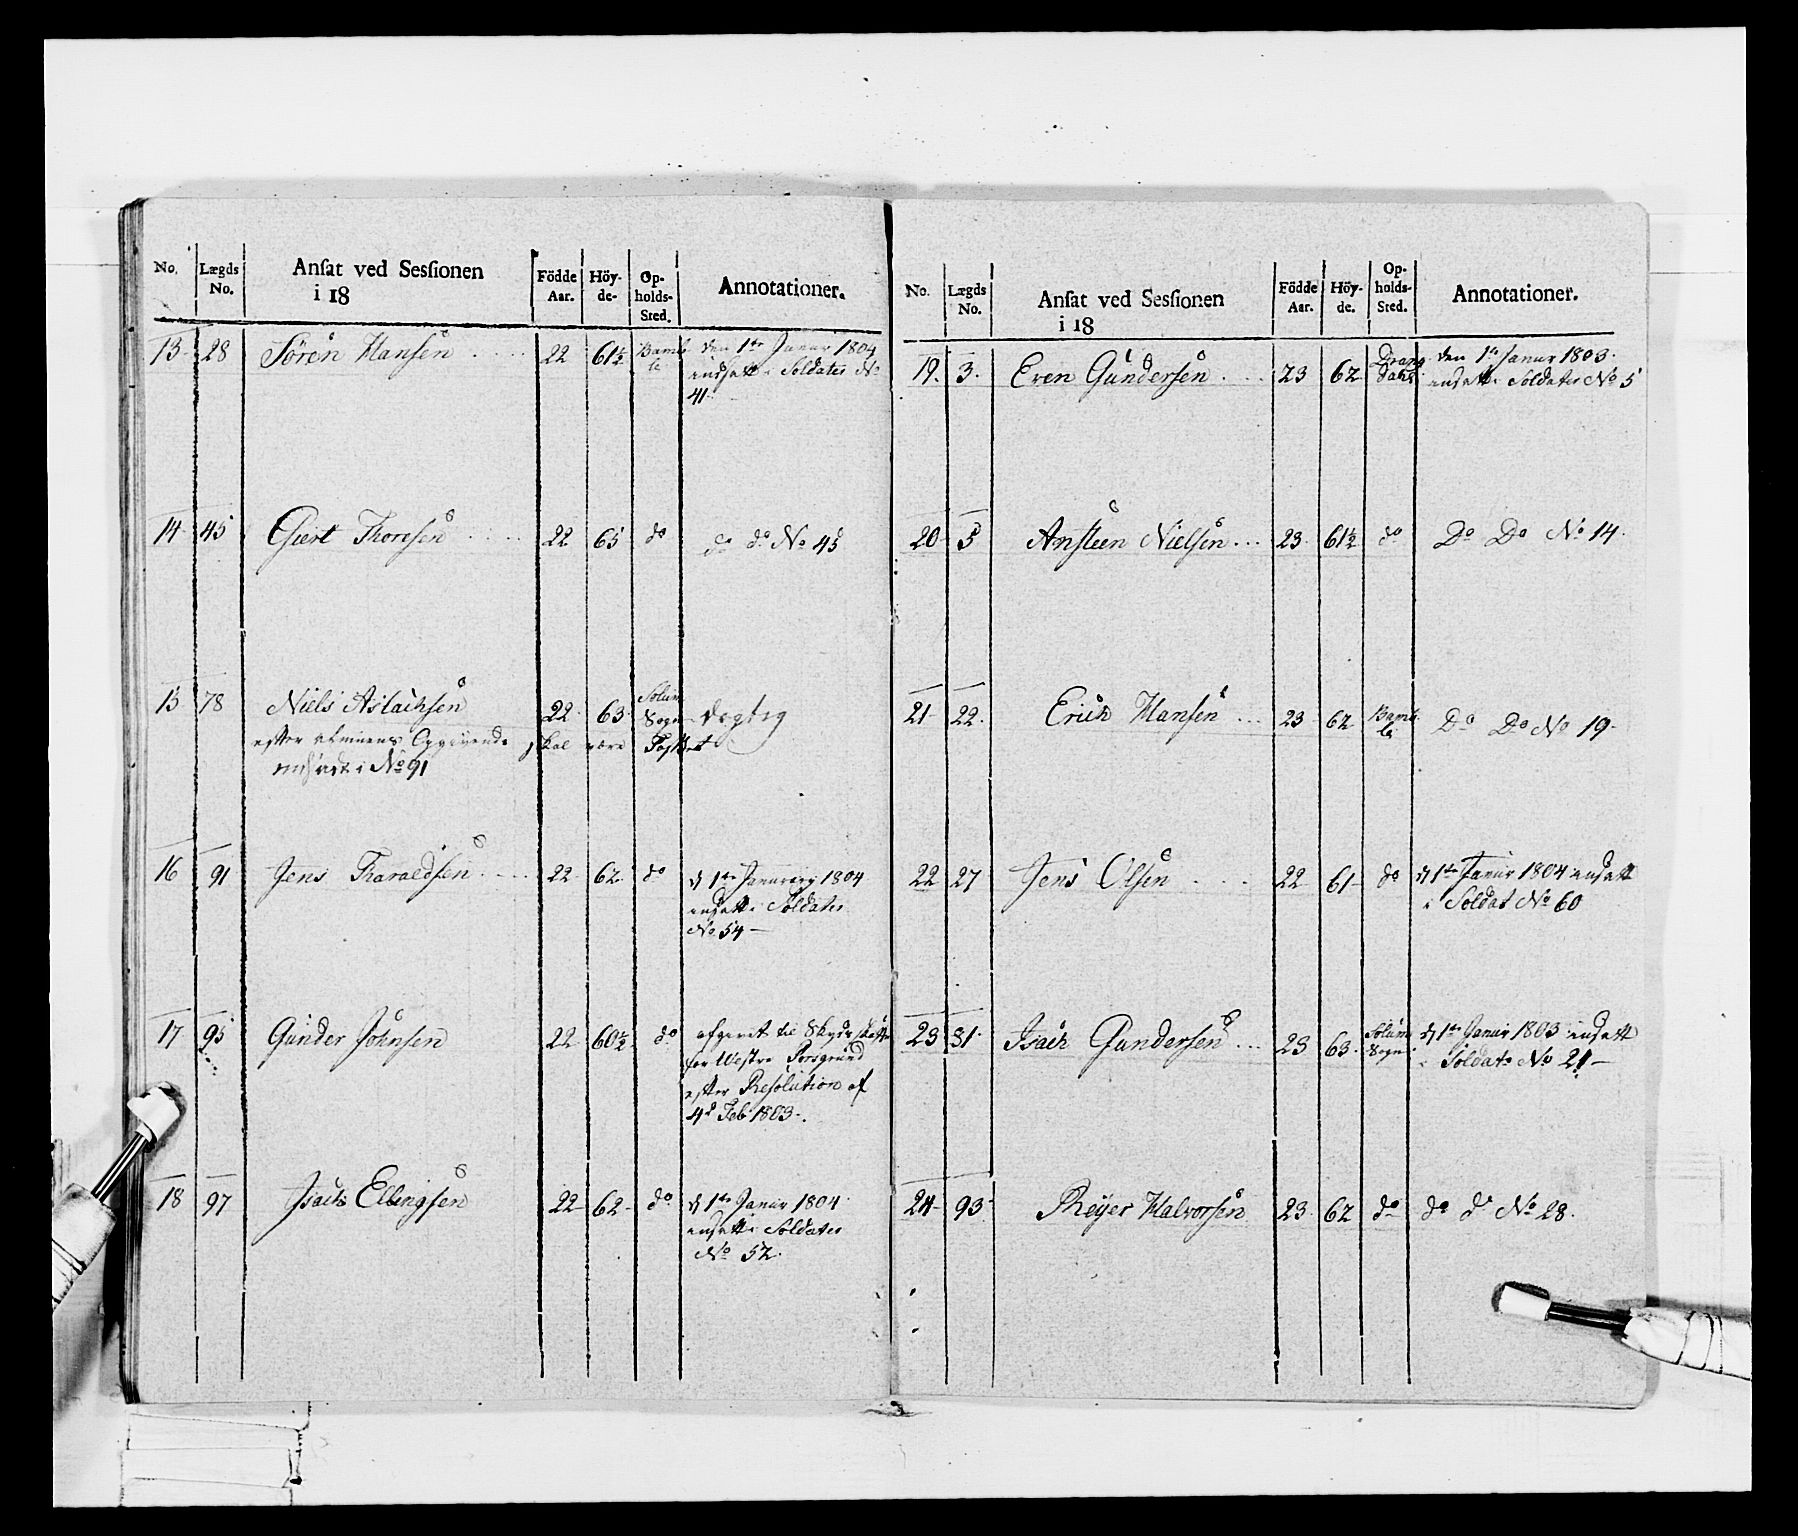 No. Lægds No. Ansat ved Sessionen i 18 Födde Aar. Höy-de- Op-holds-Sted. Annotationer.
13 28 Sören Hansen 22 61½ Bamb le den 1te Januar 1804
indsatt i Soldater No
41
14 45 Giert Thoresen 22 65 do do do No 45
15 78 Niels Aslachsen 22 63 Solum Sogn dygtig
efter Opgivende skal være
indsat i No 91
16 91 Jens Haraldsen 22 62 do d 1te Januarij 1804
indsatt i Soldater
No 54
17 95 Gunder Johnsen 22 60½ do afgaret til
for Westre Porsgrund
efter Resolution af
4d Feb 1803.
18 97 Isach Ellingsen 22 62 do d 1te Januar 1804
indsatt i Soldater
No 52
No. Lægds No. Ansat ved Sessionen i 18 Födde Aar. Höy-de. Op-holds-Sted. Annotationer.
19. 3. Even Gundersen 23 62 Drang dahl den 1te Januar 1803.
indsatt i Soldater No 5
20 5 Ansteen Nielsen 23 61½ do Do Do No 14
21 22. Erich Hansen 23 62 Bamb le Do Do No 19
22 27 Jens Olsen 22 61 do d 1te Januar 1804 indsatt
i Soldat No 60
23 31 Isach Gundersen 23 63 Solum Sogn d 1te Januar 1803 indsatt
i Soldat No 21
24 93 Reyer Halvorsen 23 62 do do do No 28.